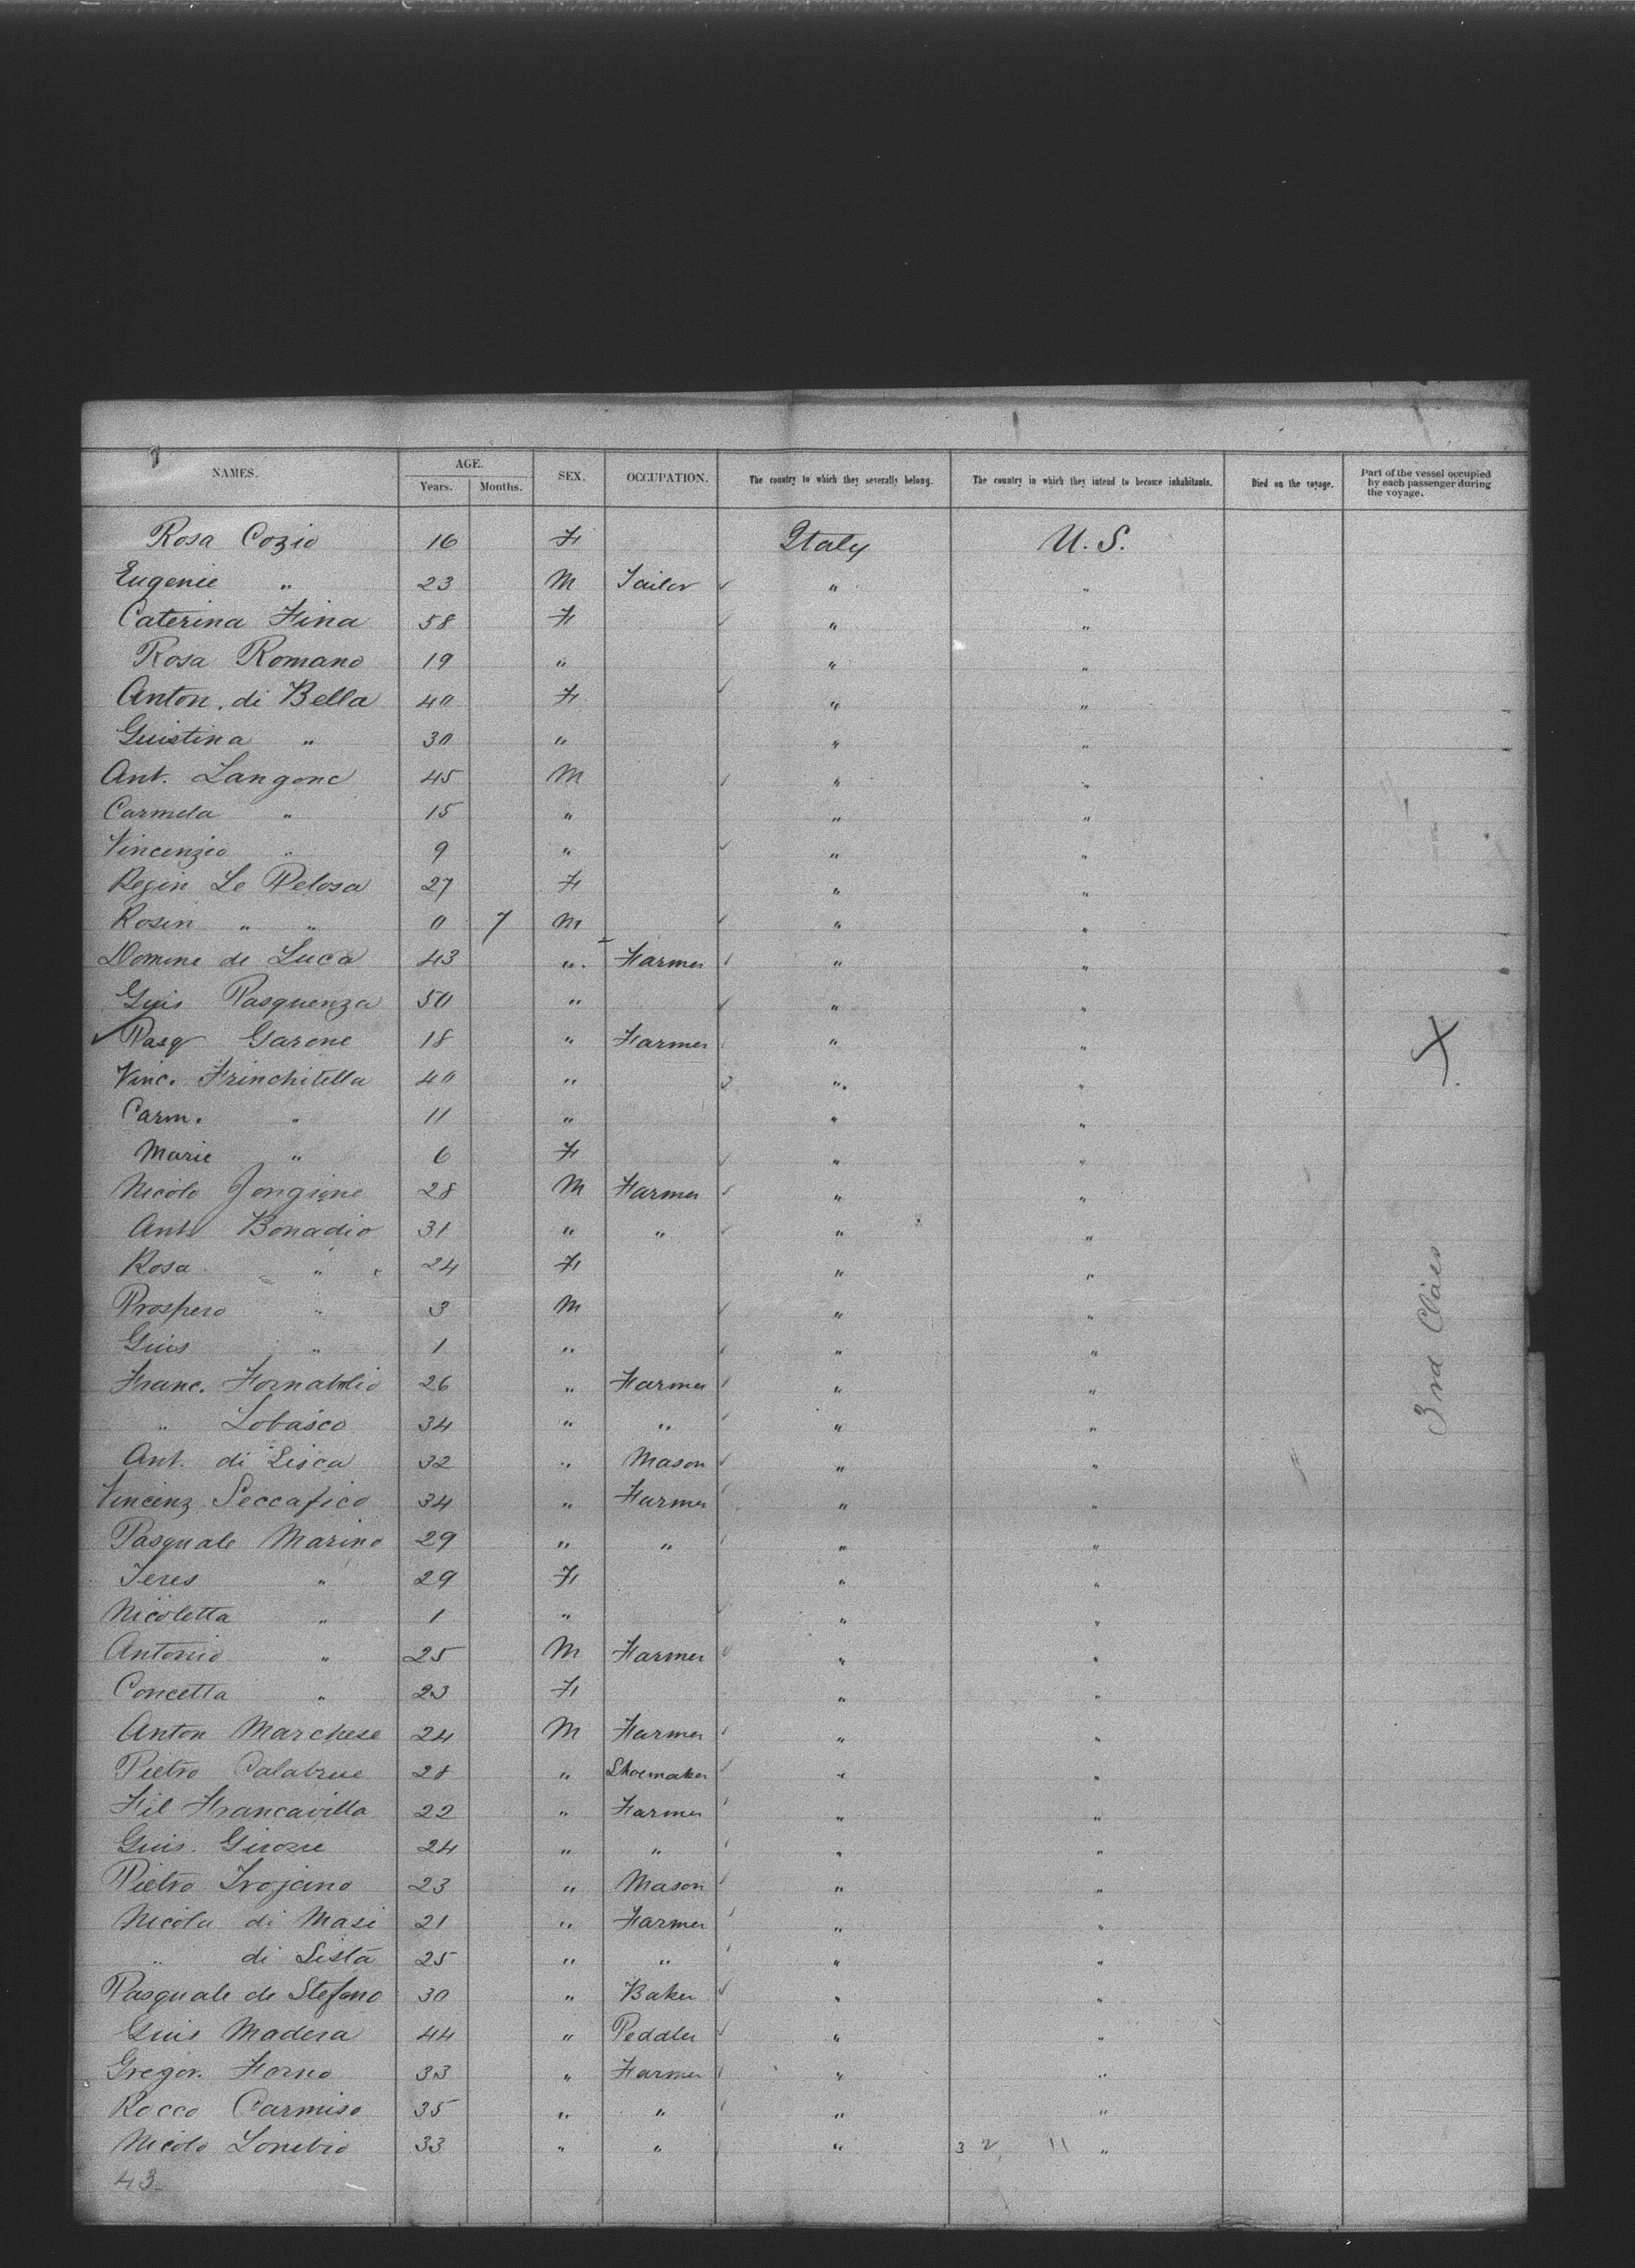 NAMES. AGE. Years. Months. SEX. OCCUPATION. The country to which they severally belong. The country in which they intend to become inhabitants. Died on the voyage. Part of the vessel occupied by each passenger during the voyage.
Rosa Cozio 16 F Italy U.S.
Eugenie " 23 M Tailor " "
Caterina Fina 58 F " "
Rosa Romano 19 " " "
Anton. di Bella 40 F " "
Guistina " 30 " " "
Ant. Langone 45 M " "
Carmela " 15 " " "
Vincenzio " 9 " " "
Regin Le Pelosa 27 F " "
Rosin " " 0 7 M " "
Domene de Luca 43 " Farmer " "
Guis Pasquenza 50 " " "
Pasq Garone 18 " Farmer " "
Vinc. Frinchitella 40 " " "
Carm. " 11 " " "
Marie " 6 F " "
Nicolo Jongione 28 M Farmer " "
Ant Bonadio 31 " " " "
Rosa " 24 F " "
Prospero " 3 M " "
Guis " 1 " " "
Franc. 26 " Farmer " "
" Lobasco 34 " " " "
Ant. di Lisca 32 " Mason " "
Vincenz Seccafico 34 " Farmer " "
Pasquale Marino 29 " " " "
Teres " 29 F " "
Nicoletta " 1 " " "
Antonio " 25 M Farmer " "
Concetta " 23 F " "
Anton Marchese 24 M Farmer " "
Pietro 28 " Shoemaker " "
Fil Francavilla 22 " Farmer " "
Guis. 24 " " " "
Pietro Trojano 23 " Mason " "
Nicola di Masi 21 " Farmer " "
" di Lista 25 " " " "
Pasquale de Stefano 30 " Baker " "
Guis Madera 44 " Peddler " "
Gregor. Forno 33 " Farmer " "
Rocco Carmiso 35 " " " "
Nicolo 33 " " " 3 2 11 "
43
3rd Class